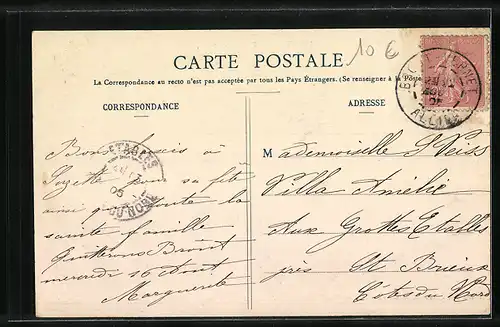 10 €
CARTE POSTALE
La Correspondance au recto n'est pas acceptée par tous les Pays Étrangers. (Se renseigner à la Poste
CORRESPONDANCE
ADRESSE
ALLIER
ETABLES
05
Bons à
pour sa fête
ainsi toute la
sainte famille
mercredi 16 Aout
Marguerite
Mademoiselle S Weiss
Villa Amélie
Aux Grottes Etables
près St Brieux
Côtes du Nord